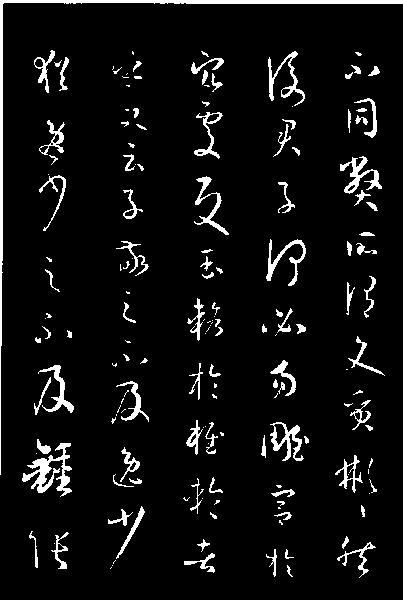 不同弊所謂文質彬々然
後君子何必易雕宮於
穴處反玉輅於椎輪者
乎又云子敬之不及逸少
猶逸少之不及鍾張